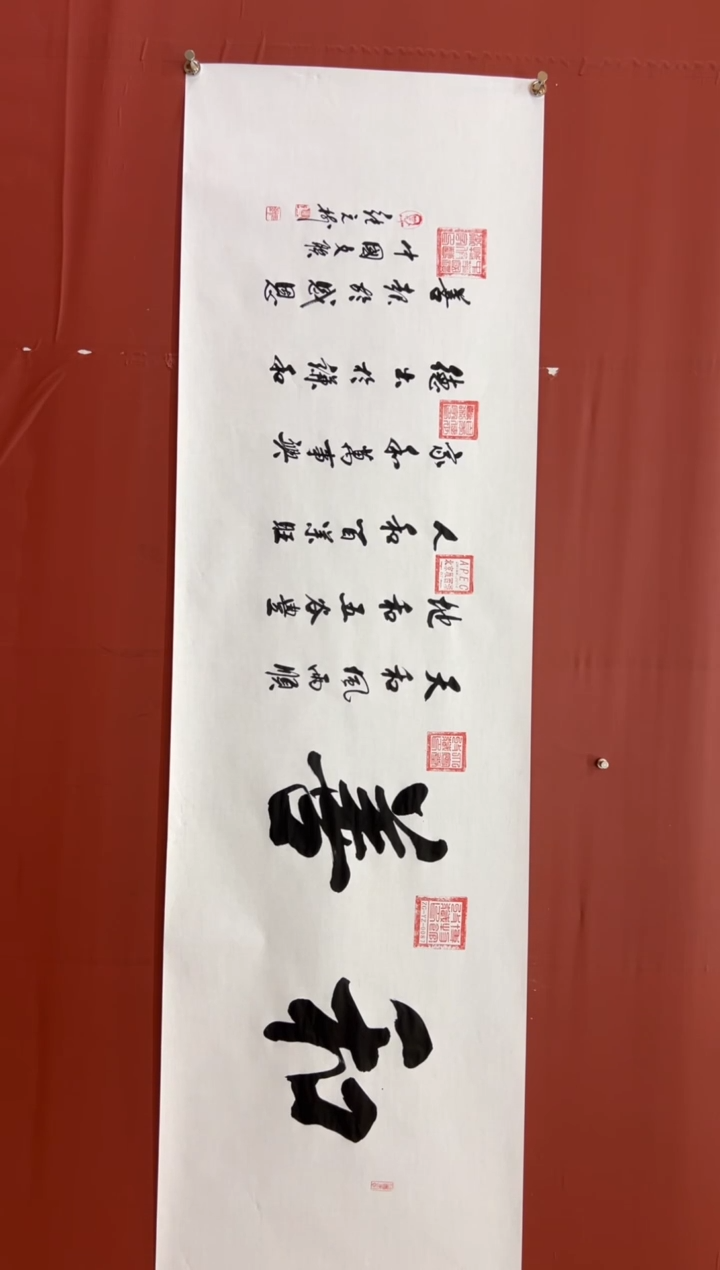 和善
天和風雨順
地和五谷豐
人和百業旺
家和萬事興
德出於謙和
善報於感恩
中國文聯
APEC